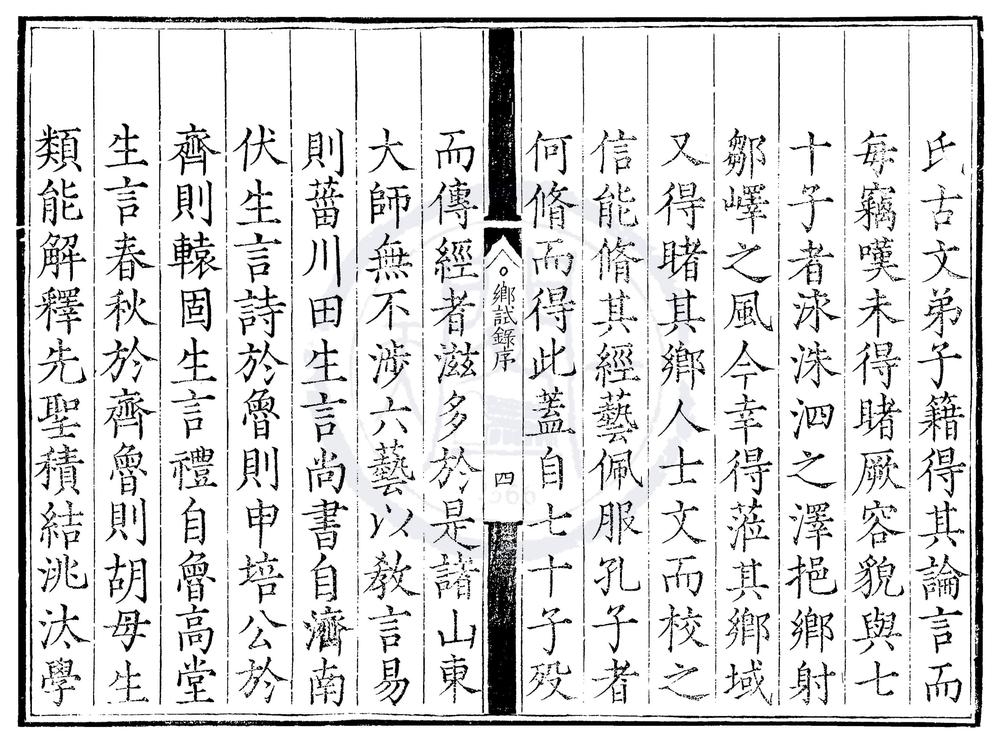 氏古文弟子籍得其論言而
每竊嘆未得睹厥容貌與七
十子者泳洙泗之澤挹鄉射
鄒嶧之風今幸得蒞其鄉域
又得睹其鄉人士文而校之
信能脩其經藝佩服孔子者
何脩而得此蓋自七十子歿
鄉試錄序
四
而傳經者滋多於是諸山東
大師無不涉六藝以敎言易
則菑川田生言尚書自濟南
伏生言詩於魯則申培公於
齊則轅固生言禮自魯高堂
生言春秋於齊魯則胡母生
類能解釋先聖積結洮汰學